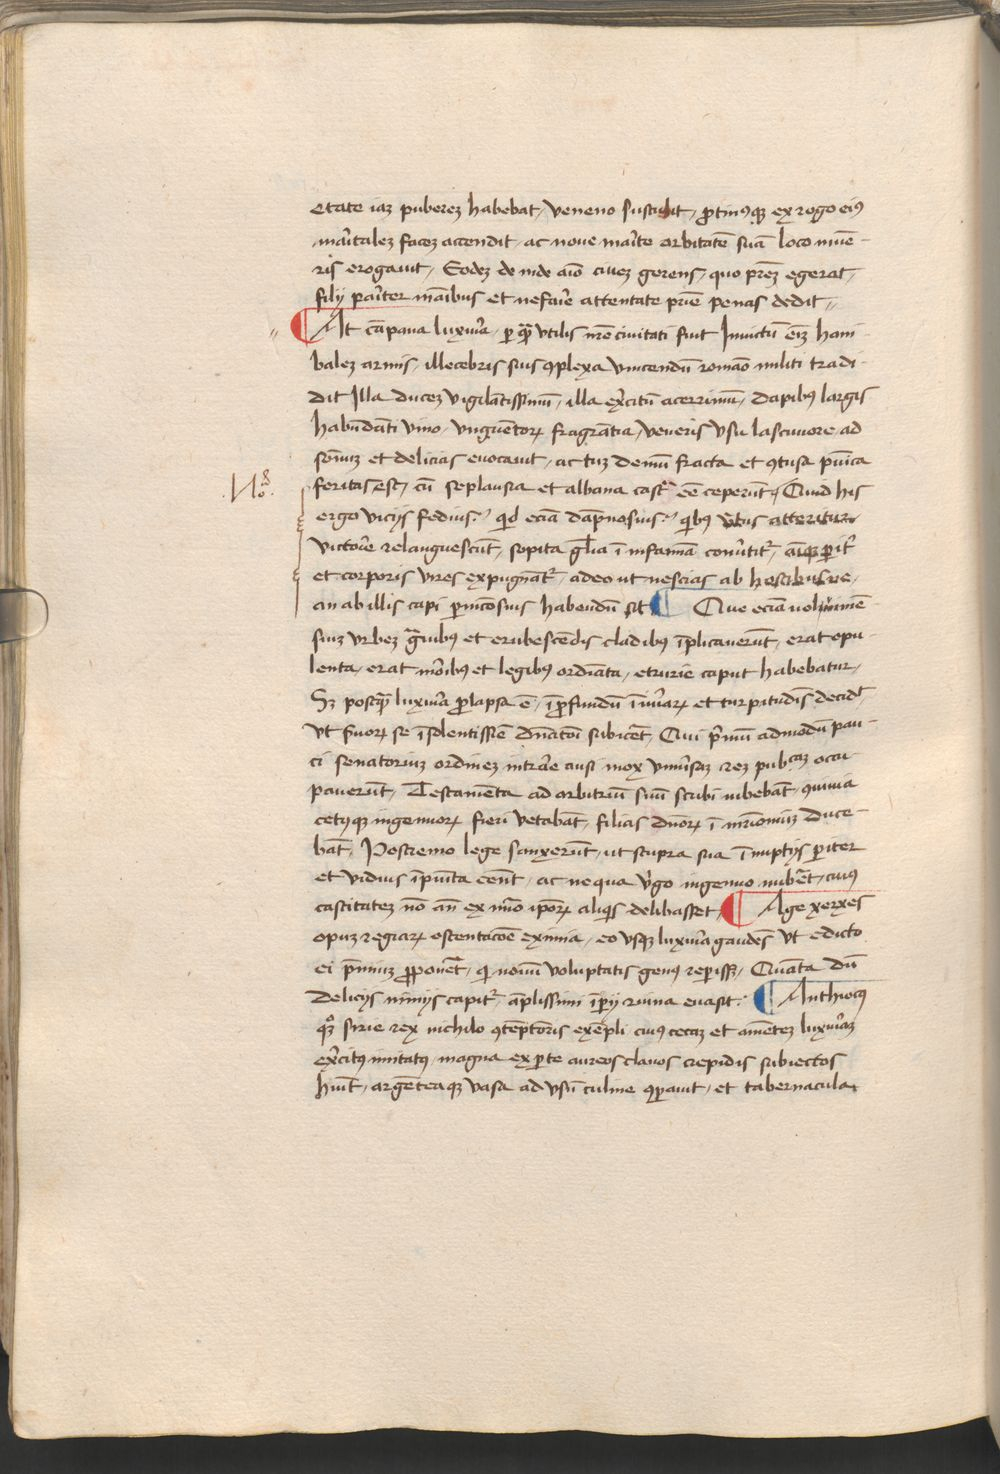 etate iaz puberez habebat, veneno sustulit, protinusqz ex rogo eius
maritalez facez accendit, ac noue marite orbitatē suā loco mune-
ris erogauit, Eodez de inde aīo ciuez gerens, quo prēz egerat,
filij pariter manibus et nefarie attentate prīe penas dedit
At cāpana luxuria, per quā vtilis nrē ciuitati fuit Inuictū eīz hani-
balez armis, illecebris suis cōplexa vincendū romāo militi tradi-
dit Illa ducez vigilātissimū, illa exercitū acerrimū, dapibus largis
habūdāti vino, vnguētorum fragrātia, veneris vsu lasciuiore ad
sōnuz et delicias euocauit, ac tuz demū fracta et cōtusa punica
feritas est, cū seplasia et albana castra eē ceperūt, Quid his
No
ergo vicijs fedius? quid eciā dāpnosius? quibus virtus atteritur
victorie relanguescūt, sopita gloria ī infamiā conuertitur, aīqz pariter
et corporis vires expugnātur, adeo ut nescias ab hostibus ne,
an ab illis capi perniciosius habendū sit Que eciā volsiniē-
siuz vrbez grauibus et erubescēdis cladibus īplicauerūt, erat opu-
lenta, erat moribus et legibus ordīata, etrurie caput habebatur,
Sz postquā luxuria prolapsa ē, ī profundū iniuriarum et turpitudīs decidit
vt seruorum se īsolentissīe dnātioni subiceret, Qui primū admodū pau-
ci senatoriuz ordinez intrare ausi mox vniuersaz rez publicaz occu-
pauerūt, Testamēta ad arbitriū suū scribi iubebāt, cōuiuia
cetusqz ingenuorum fieri vetabāt, filias dnōrum ī mrīoniuz duce-
bāt, Postremo lege sanxerūt, ut stupra sua ī nuptijs pariter
et viduis īpunita eent, ac ne qua virgo ingenuo nuberet, cuius
castitatez nō an ex nuo ipsorum aliquis delibasset, Age xerxes
opuz regiarum ostentacōe eximia, eo vsqz luxuria gaudēs vt edicto
ei premiuz proponeret, qui nouū voluptatis genus reperisset, Quāta dū
delicijs nimijs capitur, āplissimi īperij ruina euasit. Anthiocus
quoqz sirie rex nichilo cōtēptioris exēpli, cuius cecaz et amētez luxuriaz
exercitus imitatus, magna ex parte aureos clauos crepidis subiectos
habuit, argēteaqz vasa ad vsū culine cōparauit, et tabernacula